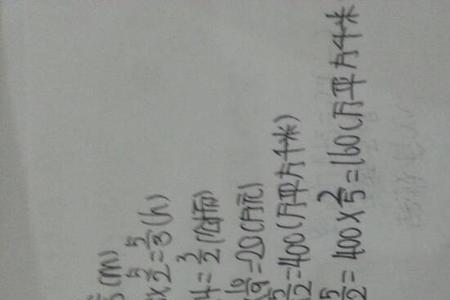 (m)
×5/2=5/3(h)
4=3/2
×10/9=20(万元)
5/2=400(万平方千米)
5/2=400×2/5=160(万平方千米